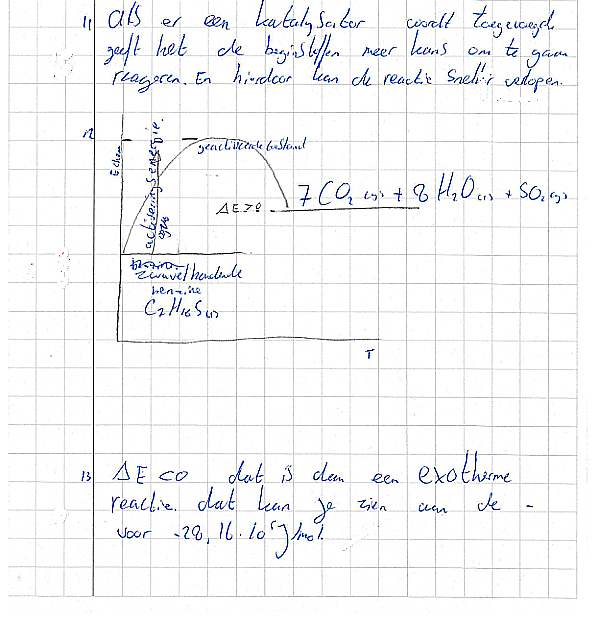 11 als er een katalysator wordt toegevoegd
geeft het de beginstoffen meer kans om te gaan
reageren. En hierdoor kan de reactie sneller verlopen.
12
Echem
activeringsenergie
geactiveerde toestand
ΔE>0
7 CO2 (g) + 8 H2O (l) + SO2 (g)
zwavelhoudende
benzine
C7H16S (l)
T
13 ΔE<0 dat is dan een exotherme
reactie. dat kan je zien aan de -
voor -28,16·10^5 J/mol.